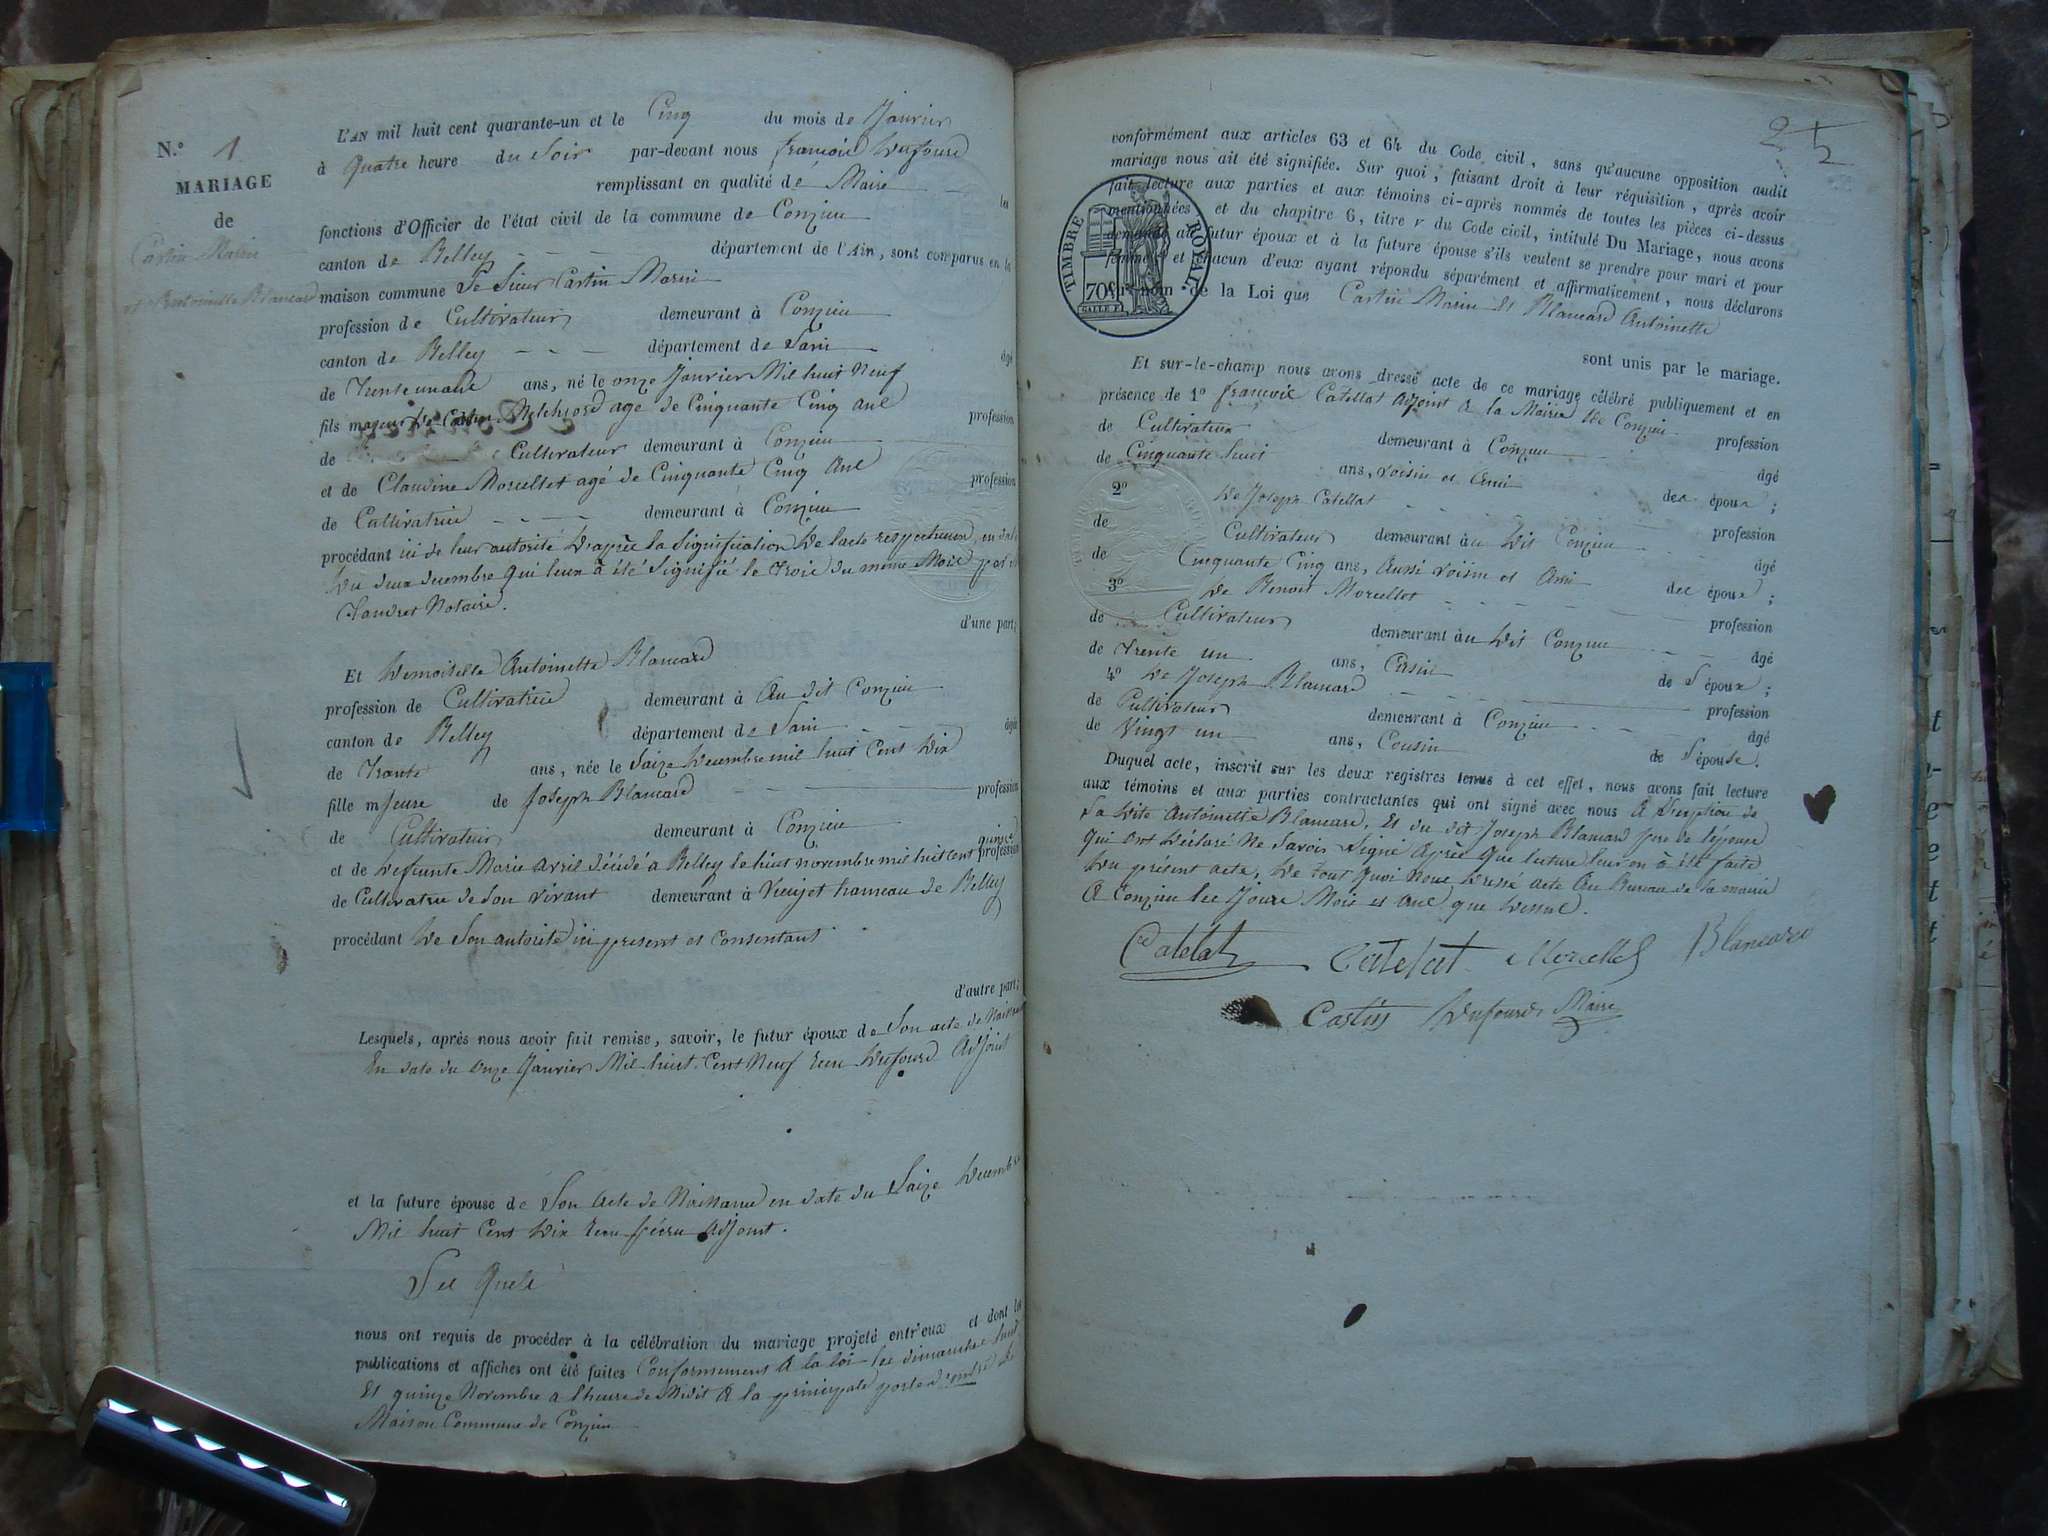 N.° 1
MARIAGE
de
Castin Marin
et Antoinette Blancard
L'AN mil huit cent quarante-un et le Cinq du mois de Janvier
à Quatre heure du Soir par-devant nous françois Dufourd
remplissant en qualité de Maire les
fonctions d'Officier de l'état civil de la commune de Conzieu
canton de Belley département de l'Ain, sont comparus en la
maison commune Le Sieur Castin Marin
profession de Cultivateur demeurant à Conzieu
canton de Belley département de Lain âgé
de Trente un ans, né le onze Janvier Mil huit Neuf
fils majeur de Castin Melchiord age de Cinquante Cinq ans profession
de Cultivateur demeurant à Conzieu
et de Claudine Morcellet agé de Cinquante Cinq Ans profession
de Cultivatrice demeurant à Conzieu
procédant ici de leur autorité D'après la Signification De lacte respectueux en date
Du deux decembre Qui leur à été Signifié le Trois du même Mois par
Notaire.
d'une part;
Et Demoiselle Antoinette Blancard
profession de Cultivatrice demeurant à Au dit Conzieu
canton de Belley département de Lain âgée
de Trante ans, née le Saize Decembre mil huit Cent Dix
fille mJeure de Joseph Blancard profession
de Cultivateur demeurant à Conzieu
et de Deffunte Marie Avril décédé à Belley le huit novembre mil huit cent quinze profession
de Cultivatrice de Son vivant demeurant à Vieujet hameau de Belley
procédant De Son autorité ici present et Consentant
d'autre part;
Lesquels, après nous avoir fait remise, savoir, le futur époux de Son acte de Naissance
En date du Onze Janvier Mil huit Cent Neuf recu Dufourd Adjoint
et la future épouse de Son Acte de Naissance en date du Saize Decembre
Mil huit Cent Dix recu Adjoint.
Les Quels
nous ont requis de procéder à la célébration du mariage projeté entr'eux et dont les
publications et affiches ont été faites Conformement A la loi les dimanches huit
Et quinze Novembre a lheure de Midit A la principale porte d'entrée de
Maison Commune de Conzieu
25
conformément aux articles 63 et 64 du Code civil, sans qu'aucune opposition audit
mariage nous ait été signifiée. Sur quoi, faisant droit à leur réquisition, après avoir
fait lecture aux parties et aux témoins ci-après nommés de toutes les pièces ci-dessus
mentionnées et du chapitre 6, titre V du Code civil, intitulé Du Mariage, nous avons
demandé au futur époux et à la future épouse s'ils veulent se prendre pour mari et pour
femme; et chacun d'eux ayant répondu séparément et affirmativement, nous déclarons
au nom de la Loi que Castin Marin Et Blancard Antoinette
TIMBRE ROYAL.
70c
GALLE F.
sont unis par le mariage.
Et sur-le-champ nous avons dressé acte de ce mariage célébré publiquement et en
présence de 1° françois Catellat Adjoint A la Mairie De Conzieu profession
de Cultivateur demeurant à Conzieu âgé
de Cinquante huit ans, voisin et Ami des époux;
2° De Joseph Catellat profession
de Cultivateur demeurant àu Dit Conzieu âgé
de Cinquante Cinq ans, Aussi voisin et Ami des époux;
3° De Benoit Morcellet profession
de Cultivateur demeurant àu Dit Conzieu âgé
de Trente un ans, Cusin de L époux;
4° De Joseph Blancard profession
de Cultivateur demeurant à Conzieu âgé
de Vingt un ans, Cousin de L'épouse.
Duquel acte, inscrit sur les deux registres tenus à cet effet, nous avons fait lecture
aux témoins et aux parties contractantes qui ont signé avec nous A L'exeption de
La Dite Antoinette Blancard, Et du dit Joseph Blancard pere de lépouse
Qui Ont Déclaré Ne Savoir Signé Après Que lecture leur en à été faite
Du présent acte, De Tout Quoi Nous Dressé acte Au Bureau de la mairie
A Conzieu les Jours Mois et ans que Dessus.
Catélat Catelat Morcellet Blancard
Castin Dufourd Maire